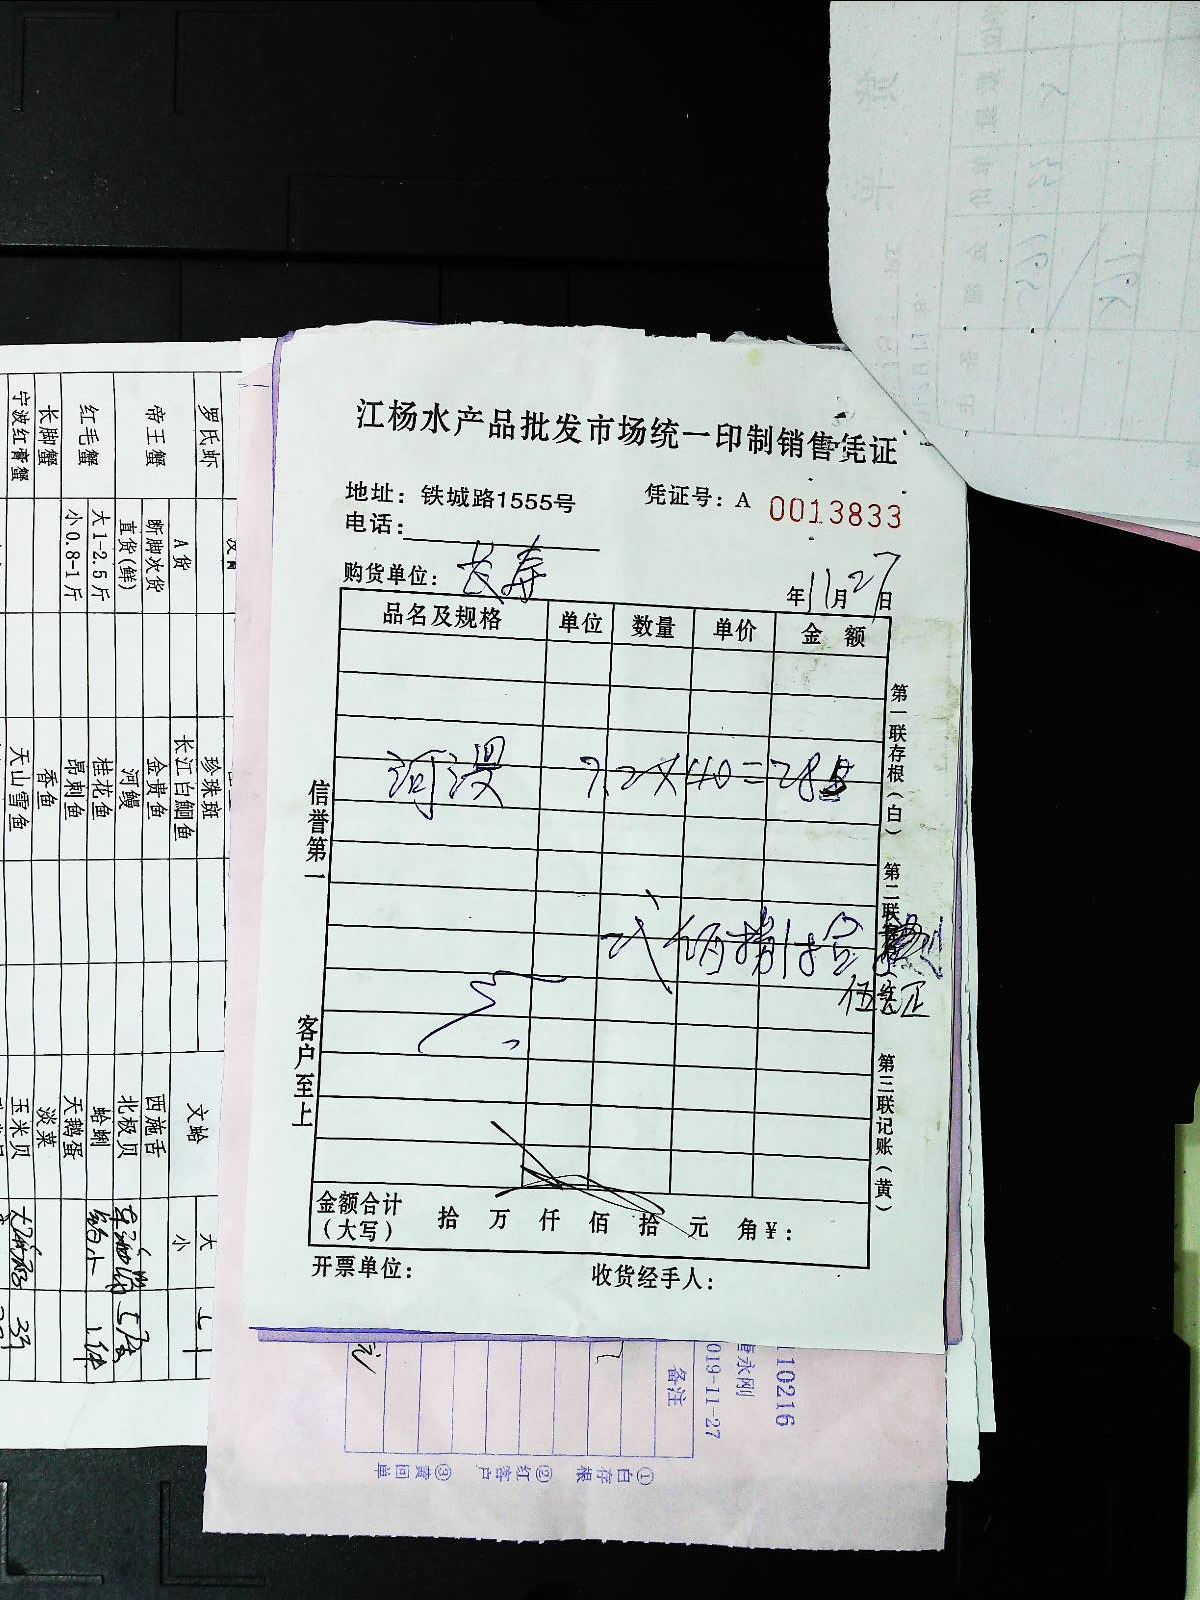 江杨水产品批发市场统一印制销售凭证
地址：铁城路1555号 凭证号：A 0013833
电话：
购货单位：长寿 年11月27日
品名及规格 单位 数量 单价 金 额
河漫 7.2×40=285
弍佰捌拾
伍元正
金额合计（大写） 拾 万 仟 佰 拾 元 角￥：
开票单位： 收货经手人：
信誉第一 客户至上
第一联存根（白）
第二联
第三联记账（黄）
罗氏虾
帝王蟹
红毛蟹
长脚蟹
宁波红膏蟹
A货
断脚次货
直货(鲜)
大1-2.5斤
小0.8-1斤
珍珠斑
长江白鮰鱼
金贵鱼
河鳗
桂花鱼
昂刺鱼
香鱼
天山雪鱼
文蛤
大
小
西施舌
北极贝
蛤蜊
天鹅蛋
淡菜
玉米贝
110216
永刚
019-11-27
备注
①白存根 ②红客户 ③黄回单